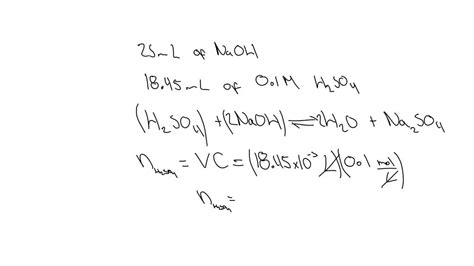 25mL of NaOH
18.45mL of 0.1M H₂SO₄
(H₂SO₄) + (2NaOH) ⇌ 2H₂O + Na₂SO₄
n_H₂SO₄ = VC = (18.45×10⁻³ L)(0.1 mol/L)
n_H₂SO₄ =